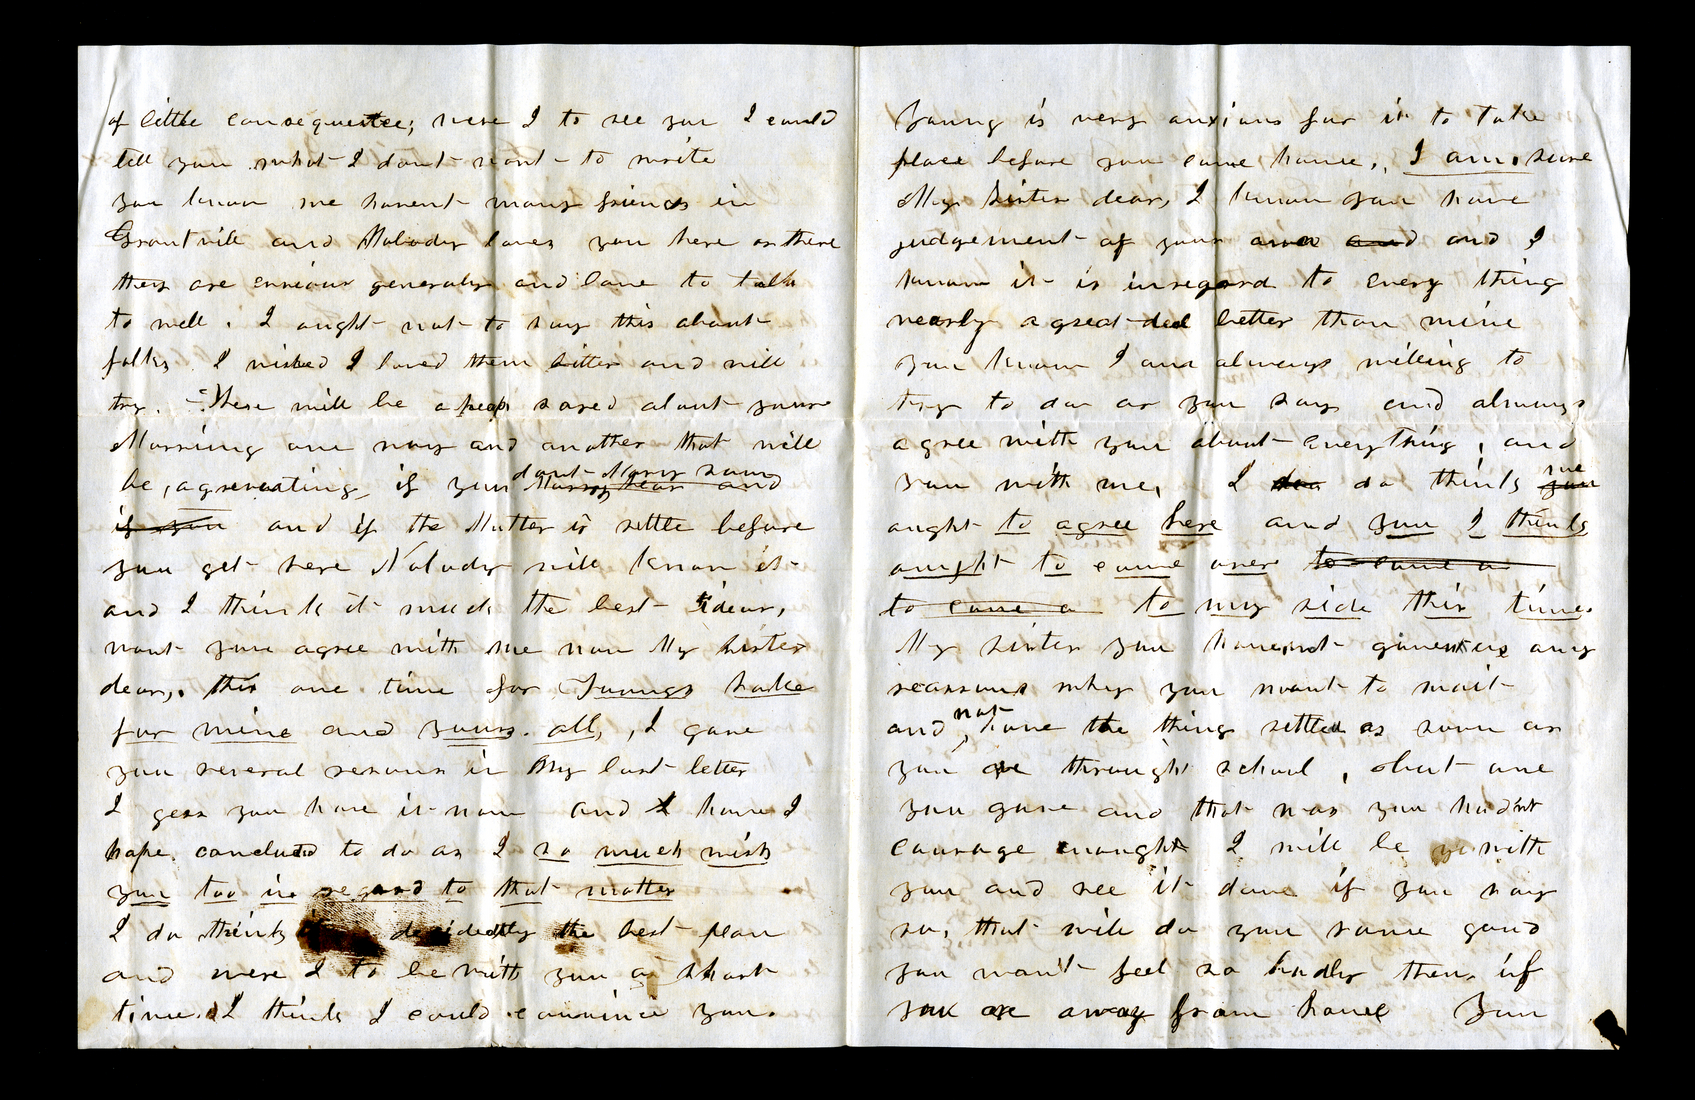 of little consequentce; were I to see you I could
tell you what I dont want to write
you know we havent many friends in
Grantvill and Nobody loves you here or there
they are envious generaly and love to talk
to well. I ought not to say this about
folks I wished I loved them better and will
try. There will be a heap sared about youre
Marring one way and another that will
be, agrevating, if you Marry dear and
dont Mary soon
if you and if the Matter is settle before
you get here Nobody will know it
and I think it much the best idear,
wont you agree with me now My sister
dear, this one time for Youngs sake
for mine and yours. all, I gave
you several resons in My last letter
I gess you have it now and I have I
hope. concluded to do as I so much wish
you too in regard to that matter
I do think it decidedly the best plan
and were I to be with you a short
time. I think I could convince you.
Young is very anxious for it to take
place before you come home, I am, sure
My Sister dear, I know you have
judgement of your own and and I
know it is in regard to every thing
nearly a great deel better than mine
you know I am always willing to
try to do as you say and always
agree with you about everything, and
you with me, I doo do think you
we
ought to agree here and you I think
ought to come over to come o
to come o to my side this time.
My sister you havent given us any
reasons why you want to wait
and have the thing settled as soon as
not
you are throught school, obut one
you gave and that was you hadn't
courage enought I will be with
you and see it done if you say
so, that will do you some good
you wont feel so badly then if
you are away from home You